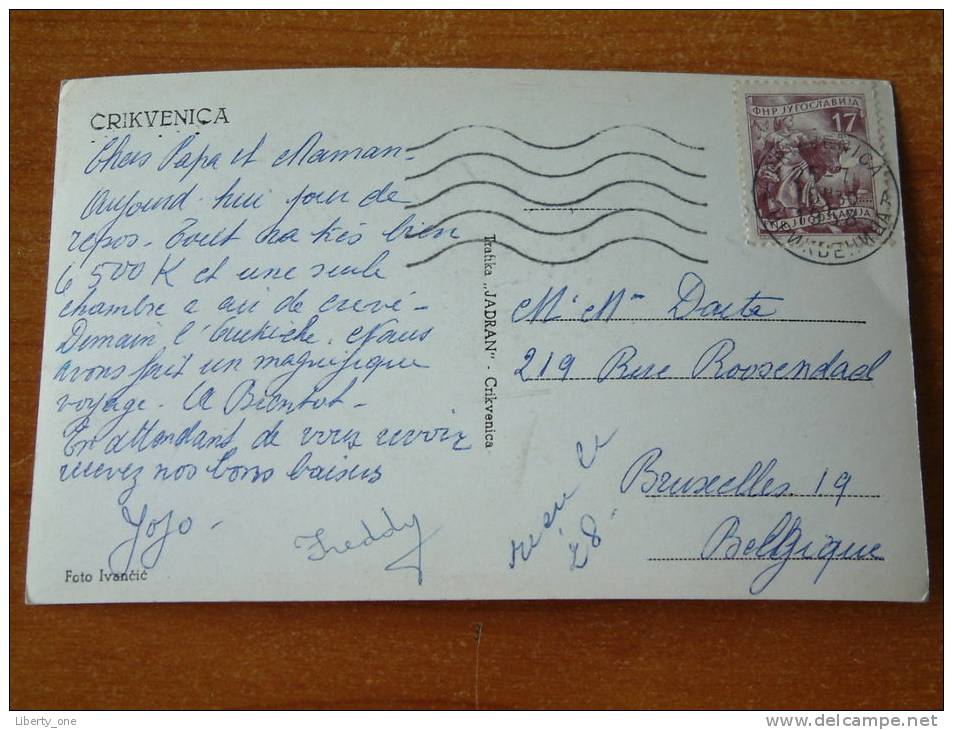 CRIKVENICA
Chers Papa et Maman-
Aujourd'hui jour de
repos- Tout va très bien
6 500 K et une seule
chambre a air de crevé-
Demain, l'Autriche. Nous
avons fait un magnifique
voyage. A Bientot-
En attendant de vous revoir
recevez nos bons baisers
Jojo-
Freddy
Foto Ivančić
Tratika „JADRAN" - Crikvenica
ФНР ЈУГОСЛАВИЈА
17
FNR JUGOSLAVIJA
Mr Mme
219 Rue Roosendaal
Bruxelles 19
Belgique
28
Liberty_one
delcampe.net